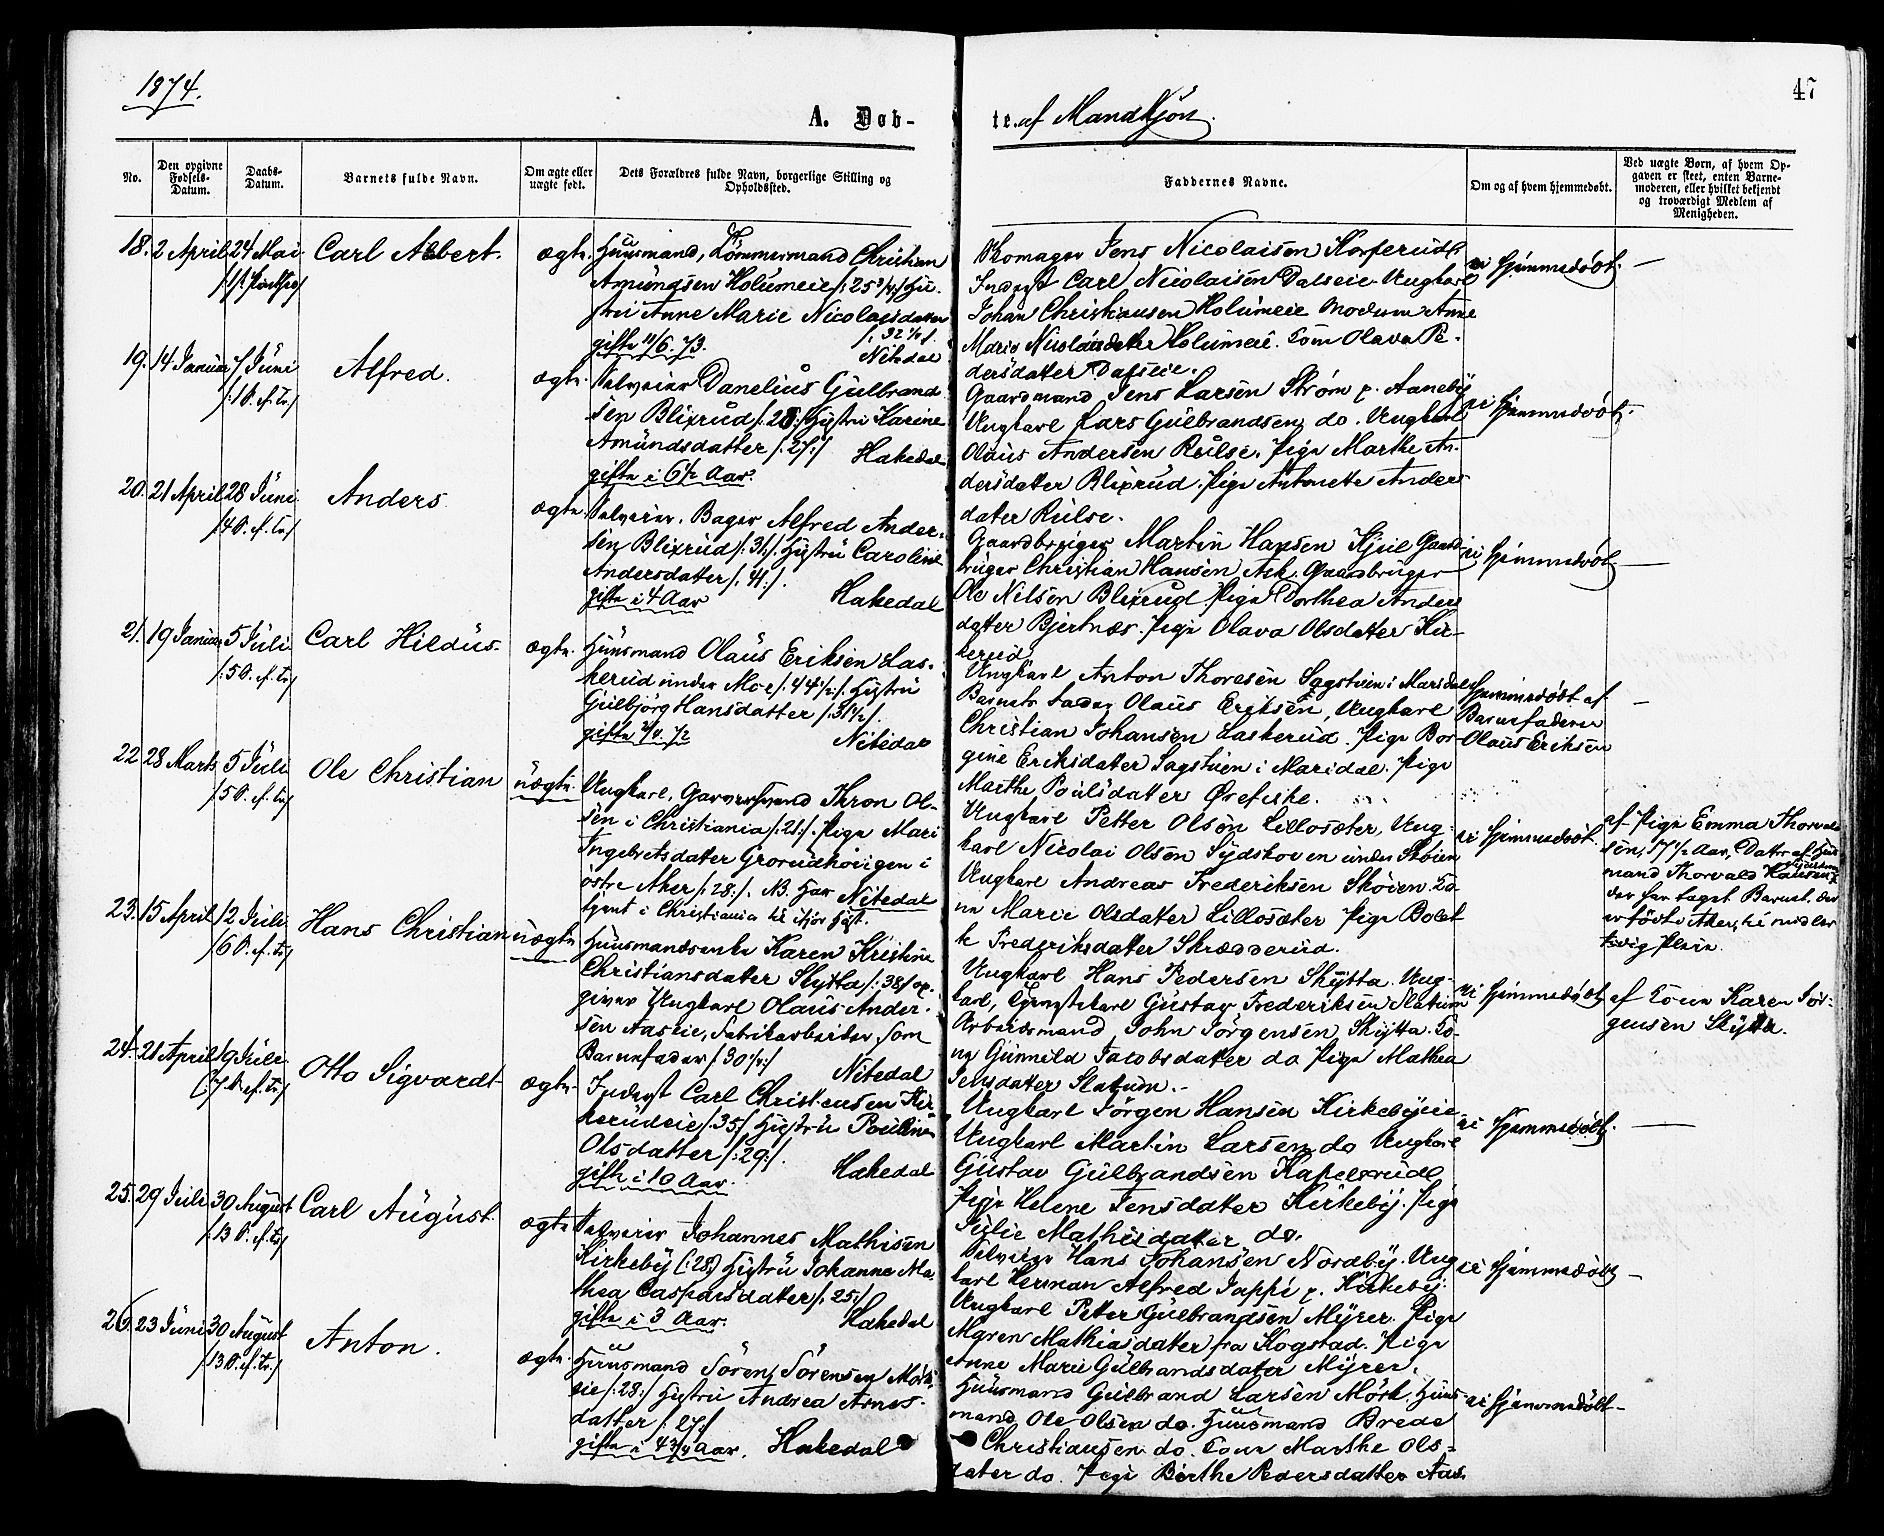 1874.
47
A. Døb-
te. af Mandkjøn.
No.
Den opgivne
Fødsels-
Datum.
Daabs-
Datum.
Barnets fulde Navn.
Om ægte eller
uægte født.
Dets Forældres fulde Navn, borgerlige Stilling og
Opholdssted.
Faddernes Navne.
Om og af hvem hjemmedøbt.
Ved uægte Børn, af hvem Op-
gaven er skeet, enten Barne-
moderen, eller hvilket bekjendt
og troværdigt Medlem af
Menigheden.
18. 2 April 24 Mai
Carl Albert.
ægte.
Huusmand, Tømmermand Christian
Amundsen Holumeie /: 25 3/4 :/ Hu-
stru Anne Marie Nicolaisdatter
/: 32 1/2 :/
gifte 11/6. 73.
Nitedal
Skomager Jens Nicolaisen Korserud.
Inderst Carl Nicolaisen Dalseie. Ungkarl
Johan Christiansen Holumeie Modum Anne
Marie Nicolaisdatter Holumeie. Kone Olava Pe-
dersdatter Dalseie.
ei hjemmedøbt. —
19. 14 Januar 7 Juni
/: 1 S. ef. Tr :/
Alfred.
ægte.
Selveier Danelius Gulbrand
sen Blixrud /: 28 :/ Hustru Karine
Amundsdatter /: 27 :/
Hakedal
gifte i 6 1/2 Aar.
Gaardmand Jens Larsen Strøm p. Aaneby
Ungkarl Lars Gulbrandsen do. Ungkarl
Olaus Andersen Rulse. Pige Marthe An-
dersdatter Blixrud. Pige Antonette Anders
datter Rulse.
ei hjemmedøbt.
20. 21 April 28 Juni
/: 4 S. ef. Tr :/
Anders
ægte.
Selveier. Bager Alfred Ander-
sen Blixrud /: 31 :/. Hustru Caroline
Andersdatter /: 41 :/.
gifte i 4 Aar
Hakedal
Gaardbruger Martin Hansen Kjul Gaard-
bruger Christian Hansen Ask. Gaardbruger
Ole Nilsen Blixrud Pige Dorthea Anders
datter Bjertnæs. Pige Olava Olsdatter Kir-
kerud.
ei hjemmedøbt —
21. 19 Januar 5 Juli
/: 5 S. ef. Tr :/
Carl Hildus
ægte.
Huusmand Olaus Eriksen Las-
kerud under Moe /: 44 1/2 :/. Hustru
Gulbjørg Hansdatter /: 31 1/2 :/.
Nitedal
Ungkarl Anton Thoresen Sagstuen i Maridal
Barnets Fader Olaus Eriksen, Ungkarl
Christian Johansen Laskerud. Pige Bor-
gine Eriksdatter Sagstuen i Maridal. Pige
Marthe Poulsdatter Ørefiske.
Hjemmedøbt af
Barnefaderen
Olaus Eriksen
—
22 28 Marts 5 Juli
/: 5 S. ef. Tr :/
Ole Christian
uægte.
Ungkarl, Garversvend Thron Ol-
sen i Christiania /: 21 :/. Pige Mari
Ingebretsdatter Grorudhøigen i
østre Aker /: 28 :/. NB. Har
Nitedal
tjent i Christiania til ifjor Høst.
Ungkarl Petter Olsen Lillosæter, Ung-
karl Nicolai Olsen Sydskoven under Skøien
Ungkarl Andreas Frederiksen Skøien. Ko-
ne Marie Olsdatter Lillosæter Pige Bolet
te Frederiksdatter Skrædderud.
ei hjemmedøbt.
af Pige Emma Thorvald
sen, 17 1/2 Aar, Datter af Huus
mand Thorvald Hansen
der har taget Barnet, der
er født i Aker, til midler
tidig Pleie.
23. 15 April 12 Juli
/: 6 S. ef. Tr :/
Hans Christian
uægte
Huusmandsenke Karen Kristine
Christiansdatter Skytta /: 38 :/ op-
giver Ungkarl Olaus Ander-
sen Aaseie, Fabrikarbeider som
Barnefader /: 30 1/2 :/
Nitedal
Ungkarl Hans Pedersen Skytta. Ung-
karl, Tjenstekarl Gustav Frederiksen Slatum
Arbeidsmand John Jørgensen Skytta. Ko-
ne Gunnild Jacobsdatter do Pige Mathea
Jensdatter Slatum.
ei hjemmedøbt
af Kone Karen Jør-
gensen Skytta.
24. 21 April 19 Juli
/: 7 S. ef. Tr :/
Otto Sigvardt
ægte
Inderst Carl Christensen Kir
kerudeie /: 35 :/ Hustru Pouline
Olsdatter /: 29 :/.
Hakedal
gifte i 10 Aar.
Ungkarl Jørgen Hansen Kirkebyeie
Ungkarl Martin Larsen do Ungkarl
Gustav Gulbrandsen Kapelsrud
Pige Helene Jensdatter Kirkeby. Pige
Julie Mathisdatter do.
ei hjemmedøbt. —
25. 29 Juli 30 August
/: 13 S. ef. Tr :/
Carl August.
ægte
Selveier Johannes Mathisen
Kirkeby (: 28 :) Hustru Johanne Ma-
thea Caspersdatter /: 25 :/
gifte i 3 Aar.
Hakedal
Selveier Hans Johansen Nordby. Ung
karl Herman Alfred Jappi p. Kirkeby.
Ungkarl Petter Gulbrandsen Myrer. Pige
Maren Mathiasdatter fra Kogstad. Pige
Anne Marie Gulbrandsdatter Myrer.
ei hjemmedøbt —
26. 23 Juni 30 August
/: 13 S. ef. Tr. :/
Anton.
ægte.
Huusmand Søren Sørensen Mørk-
eie /: 28 :/ Hustru Andrea Arnes-
datter /: 27 :/
gifte i 4 3/4 Aar. Hakedal
Huusmand Gulbrand Larsen Mørk. Huus-
mand Ole Olsen do. Huusmand Brede
Christiansen do. Kone Marthe Ols-
datter do. Pige Birthe Pedersdatter Aas.
ei hjemmedøbt —